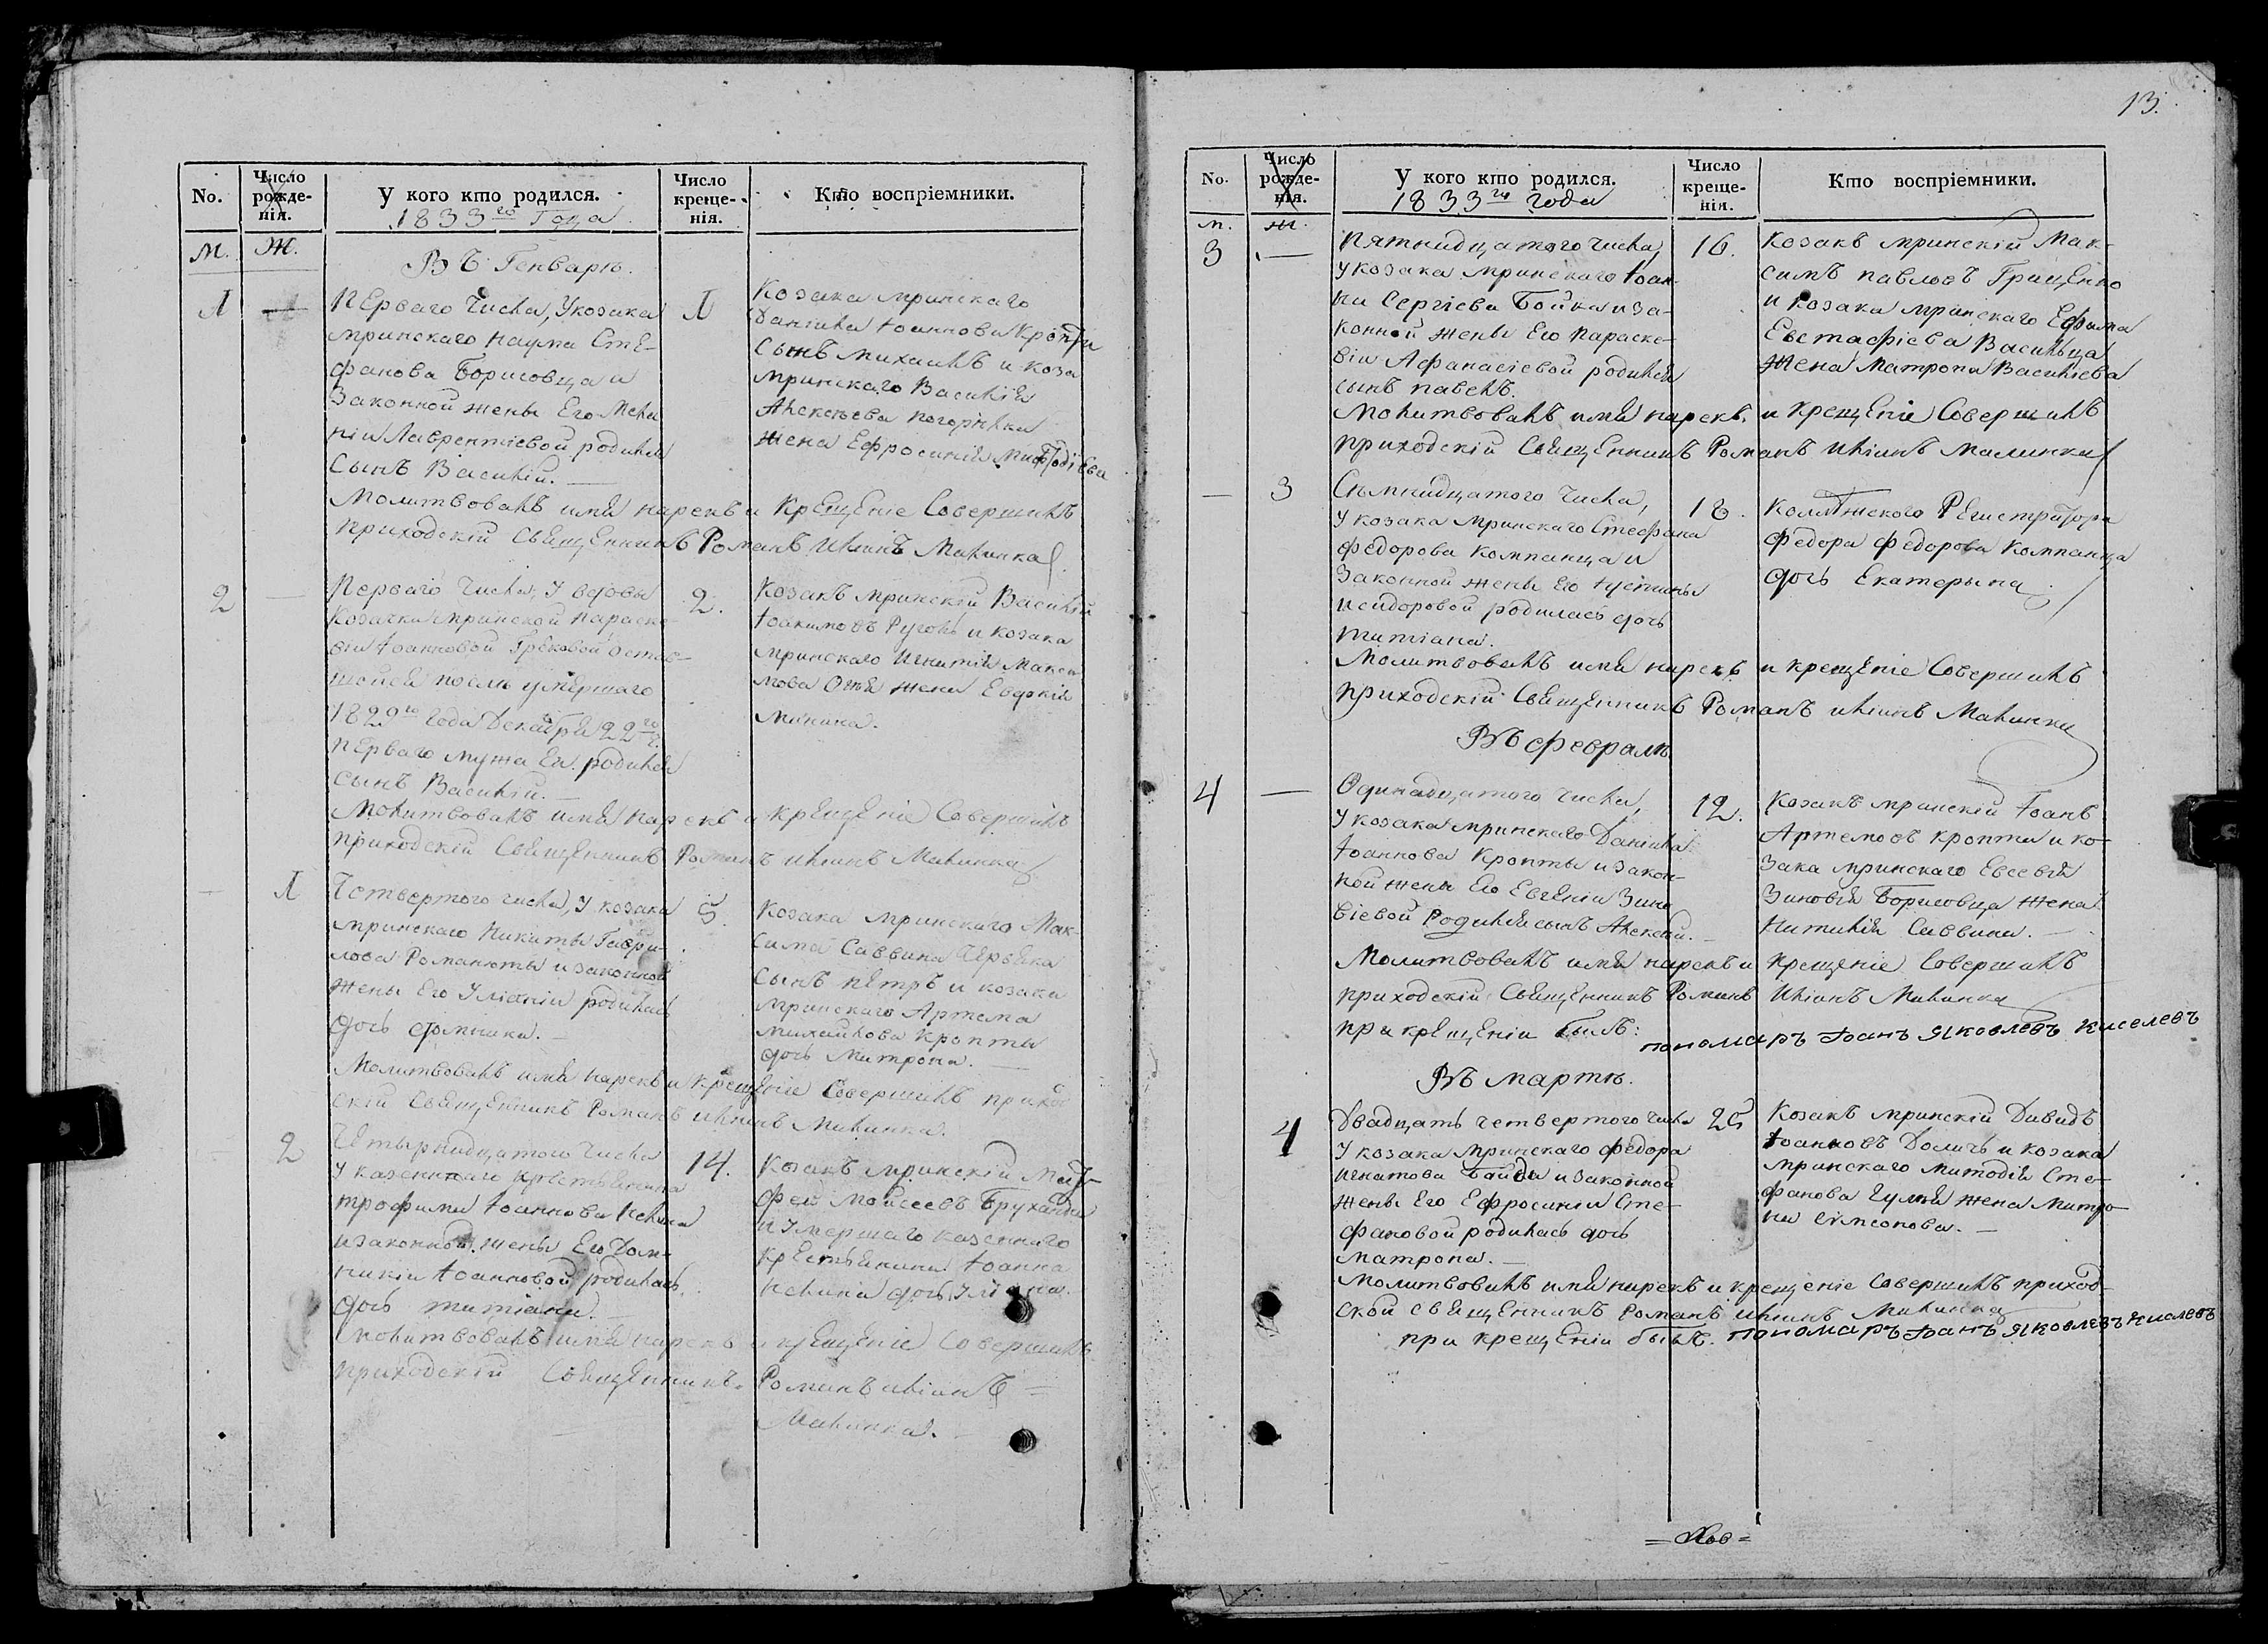 No.
Число рожде-нія.
У кого кто родился.
1833го Года
Число креще-нія.
Кто воспріемники.
М. Ж.
Въ Генварѣ.
1 —
Перваго числа, у козака
мринскаго Наума Сте-
фанова Борисовца и
Законной жены Его Мела
ніи Лаврентіевой родился
Сынъ Василій.
1
Козака мринскаго
Даніила Іоаннова Кропти
Сынъ Михаилъ и коза
мринскаго Василія
Алексѣева Погорѣлки
жена Ефросинія Мифодіева
Молитвовалъ имя нарекъ и крещеніе Совершилъ
приходскій Священникъ Романъ Иліинъ Малинка
2 —
Перваго числа, у вдовы
Козачки мринской Параске
віи Іоанновой Грековой остав-
шейся послѣ умершаго
1829го года Декабря 22го ч.
перваго мужа Ея родился
сынъ Василій.
2.
Козакъ мринскій Василій
Іоакимовъ и козака
мринскаго Игнатія Макси
мова жена Евдокія
Минина.
Молитвовалъ имя нарекъ и крещеніе Совершилъ
приходскій Священникъ Романъ Иліинъ Малинка
— 1
Четвертого числа, у козака
мринскаго Никиты Гаври-
лова Романюты и законной
жены Его Уліаніи родилась
дочь Домника.
5.
Козака мринскаго Мак-
сима Саввина Червяка
сынъ Петръ и козака
мринскаго Артема
Михайлова Кропты
дочь Матрона.
Молитвовалъ имя нарекъ и крещеніе Совершилъ приход
скій Священникъ Романъ Иліинъ Малинка.
2
Четырнадцатого числа
У казеннаго крестьянина
трофима Іоаннова
и законной жены Его Дом-
никіи Іоанновой родилась
дочь татіана.
14.
Козакъ мринскій Мат-
фей Моисеевъ Брухан
и Умершаго казеннаго
крестьянина Іоанна
дочь Уліана.
Молитвовалъ имя нарекъ и крещеніе Совершилъ
приходскій Священникъ. Романъ Иліинъ =
Малинка.
13.
No.
Число рожде-нія.
У кого кто родился.
1833го года
Число креще-нія.
Кто воспріемники.
м. ж.
3 —
Пятнадцатого числа,
у козака мринскаго Іоан-
на Сергіева Бойка и за-
конной жены Его Параске-
віи Афанасіевой родился
сынъ павелъ.
16.
Козакъ мринскій Мак-
симъ павловъ Грищенко
и козака мринскаго Ефима
Евстафіева Васильца
жена Матрона Василіева
Молитвовалъ имя нарекъ и крещеніе Совершилъ
приходскій Священникъ Романъ Иліинъ Малинка
— 3
Семнадцатого числа,
у козака мринскаго Стефана
Федорова Компанца и
Законной жены Его Іустины
Исидоровой родилась дочь
татіана.
18.
Коллѣжского Регистратора
Федора Федорова Компанца
дочь Екатерына
Молитвовалъ имя нарекъ и крещеніе Совершилъ
приходскій Священникъ Романъ Иліинъ Малинка
Въ февралѣ.
4 —
Одинадцатого числа,
у козака мринскаго Даніила
Іоаннова Кропты и закон-
ной жены Его Евгеніи Зино
віевой Родился сынъ Алексѣй.
12.
Козакъ мринскій Іоанъ
Артемовъ кропта и ко-
зака мринскаго Евсевія
Зиновія Борисовца жена
Наталія Саввина.
Молитвовалъ имя нарекъ и Крещеніе Совершилъ
приходскій Священникъ Романъ Иліинъ Малинка
При крещеніи былъ: пономаръ Іоанъ Яковлевъ Киселевъ
Въ мартѣ.
4
Двадцать четвертого числа
У козака мринскаго Федора
Игнатова Байды и законной
жены Его Ефросиніи Сте-
фановой родилась дочь
матрона.
25
Козакъ мринскій Давидъ
Іоанновъ и козака
мринскаго Мифодія Сте-
фанова жена Матро-
на Симеонова.
Молитвовалъ имя нарекъ и крещеніе Совершилъ приход-
ской священникъ Романъ Иліинъ Малинка
при крещеніи былъ. пономаръ Іоанъ Яковлевъ Киселевъ